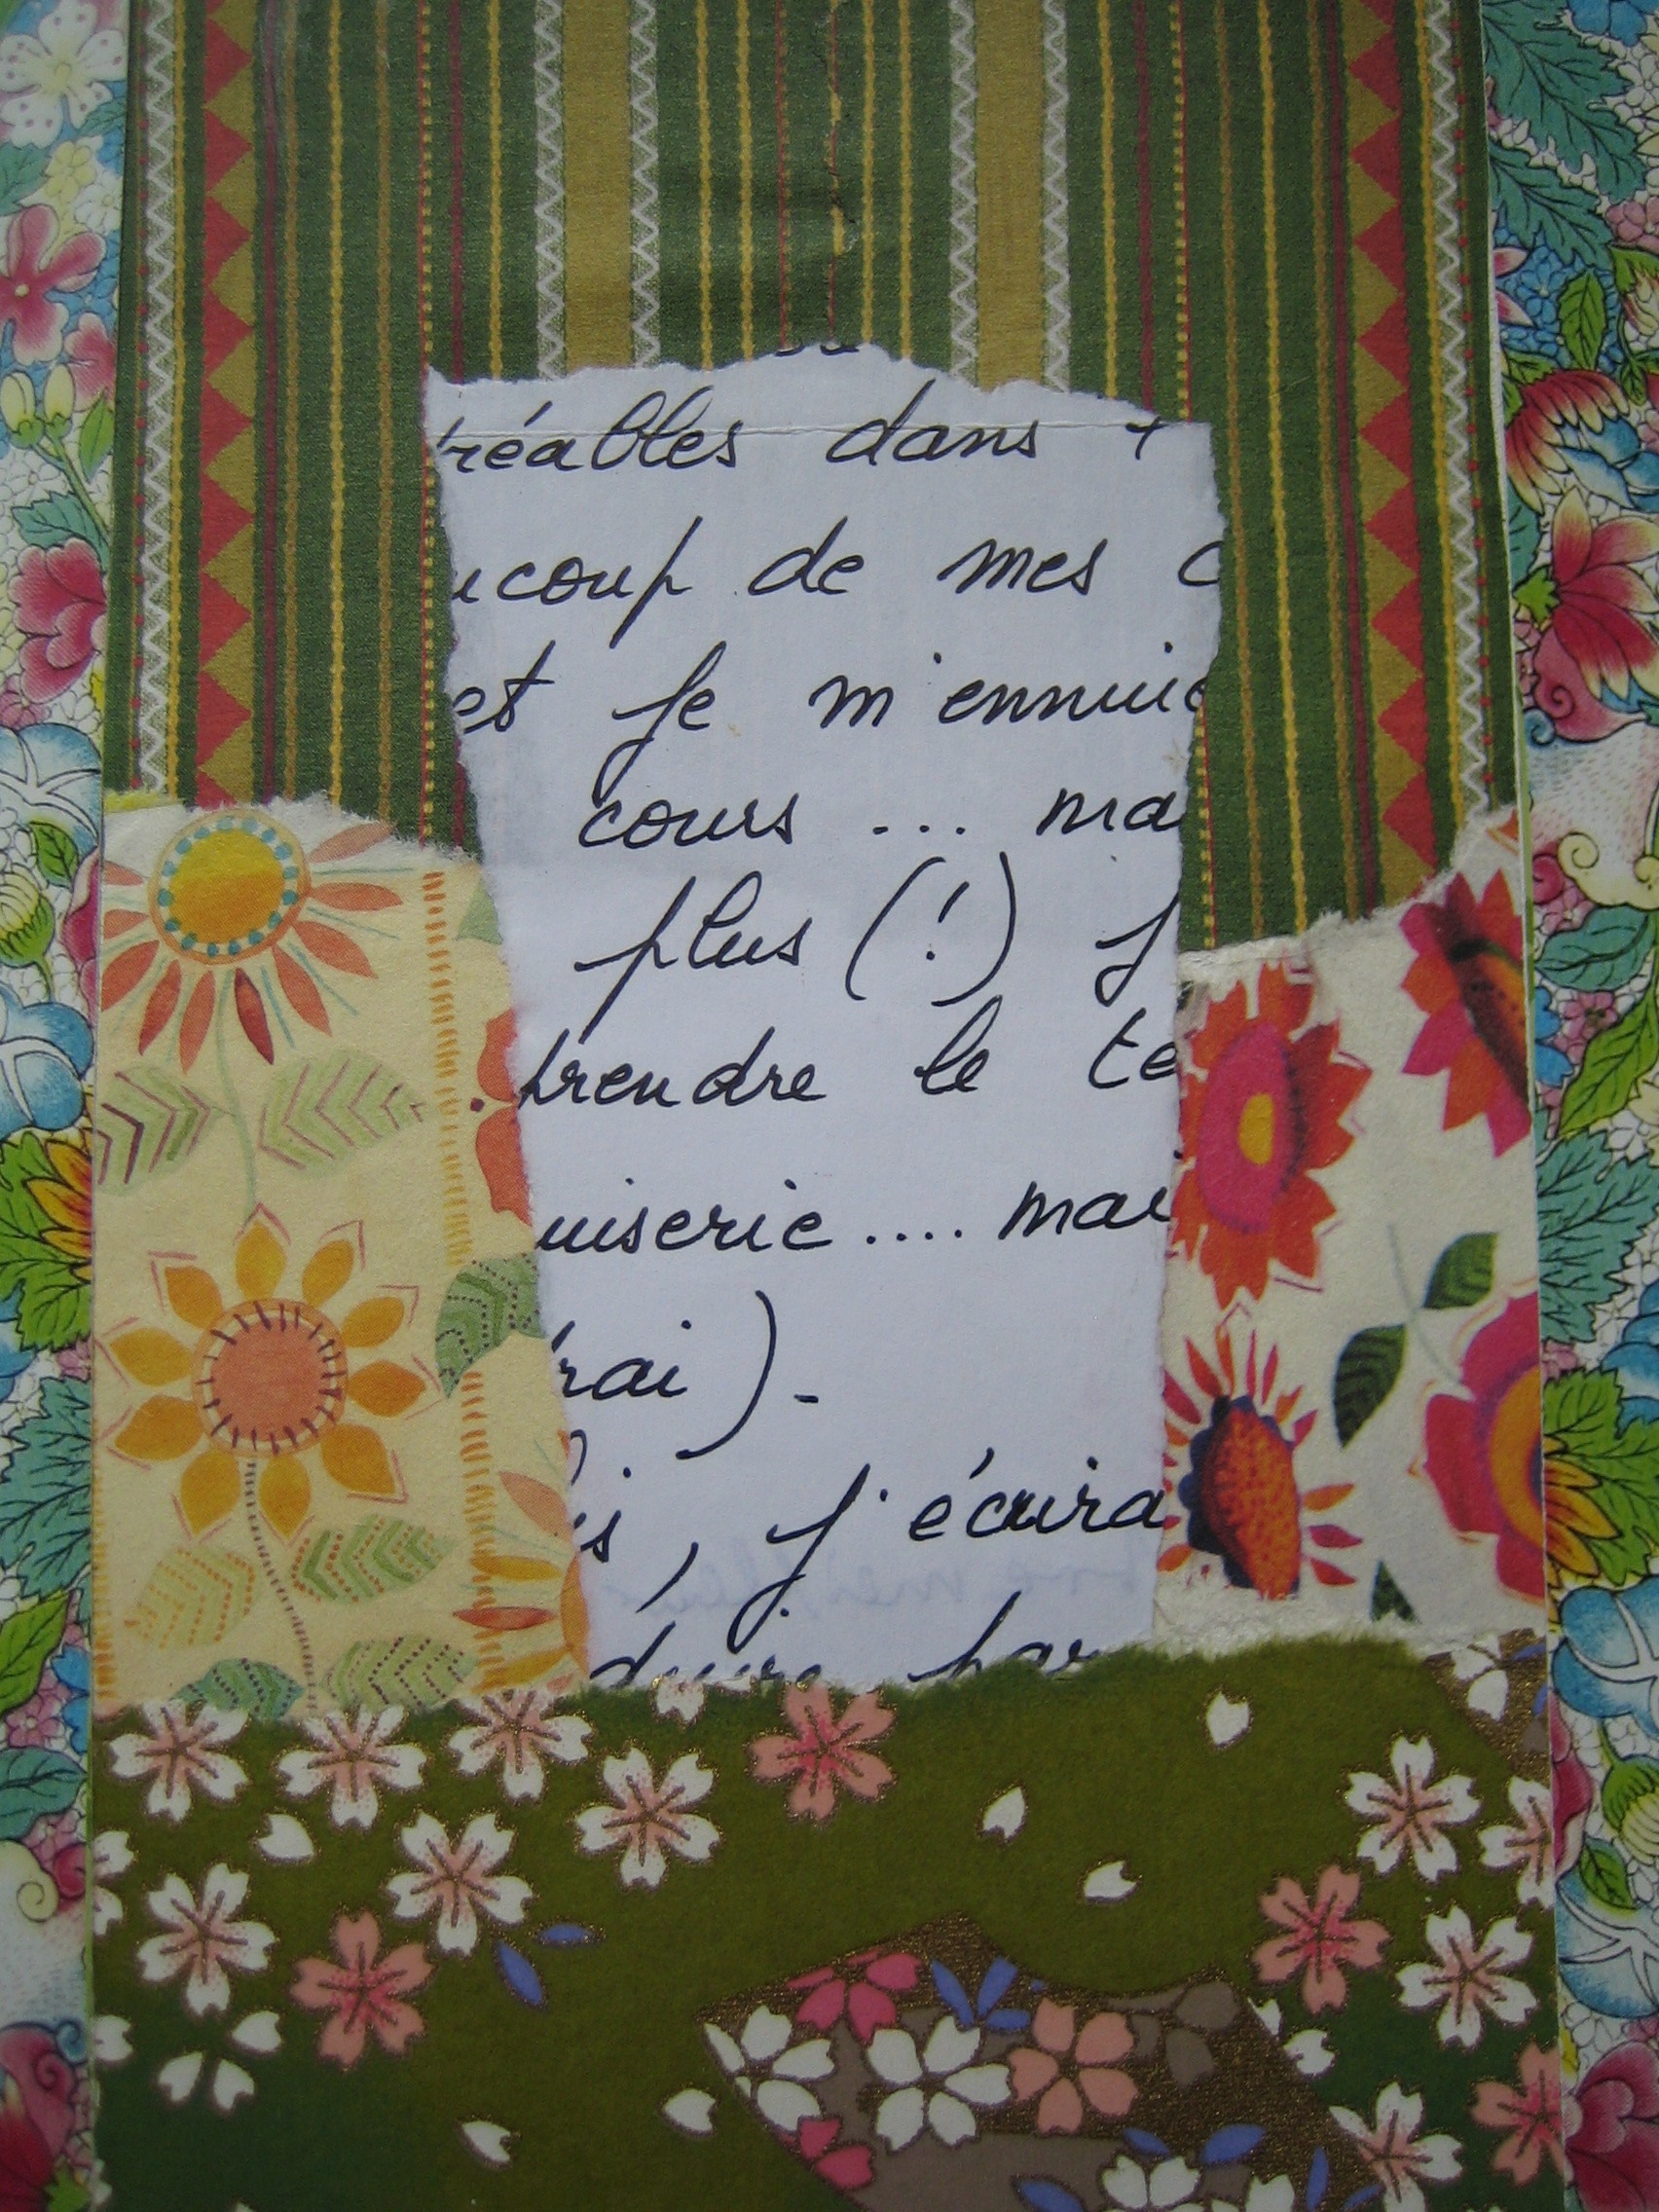 réables dans
ucoup de mes
et je m'ennuie
cours ... ma
plus (!) j
prendre le te
uiserie .... mai
rai ).
is, j'écrira